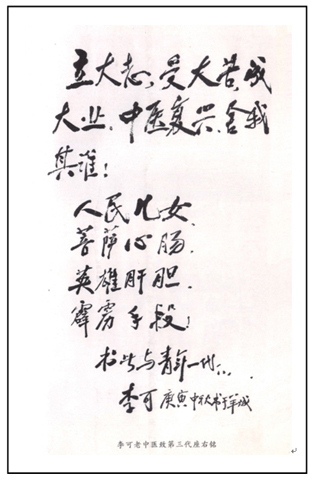 立大志，受大苦，成
大业，中医复兴，舍我
其谁！
人民儿女、
菩萨心肠、
英雄肝胆、
霹雳手段！
书此与青年一代…
李可 庚寅中秋书于羊城
李可老中医致第三代座右铭